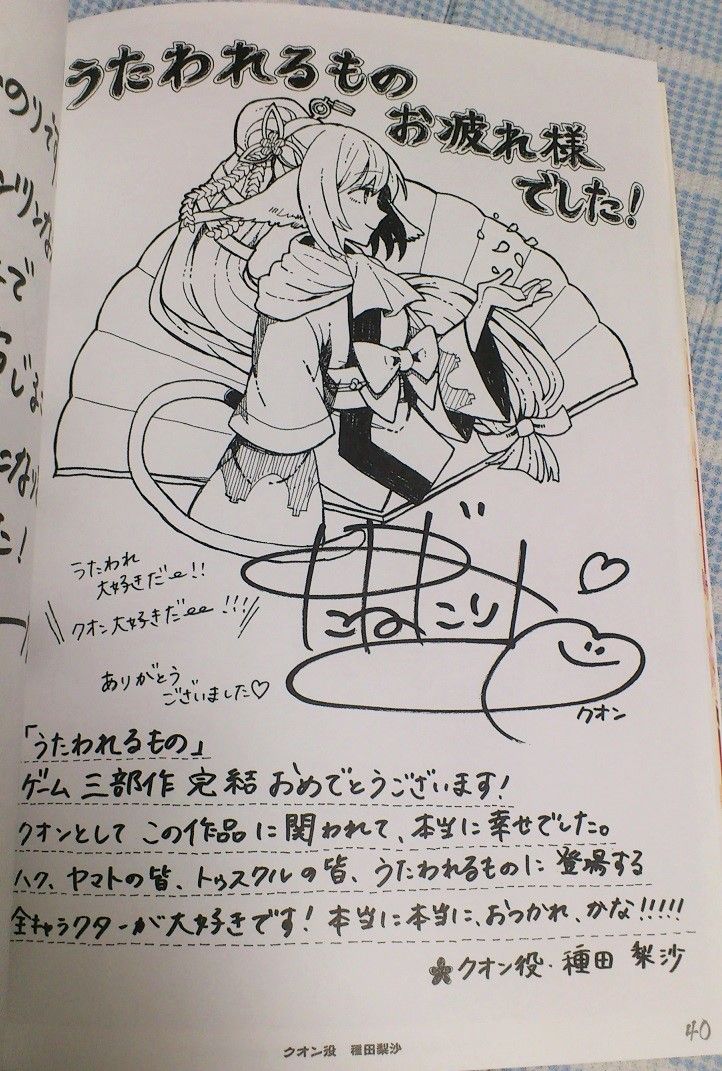 うたわれるもの
お疲れ様
でした!
うたわれ
大好きだー!!
クオン大好きだー!!!
ありがとう
ございました♡
こねこり
♡
クオン
「うたわれるもの」
ゲーム 三部作 完結 おめでとうございます!
クオンとして この作品 に 関われて、本当に 幸せでした。
ハク、ヤマトの皆、トゥスクルの皆、うたわれるものに 登場する
全キャラクターが大好きです! 本当に本当に、おつかれ、かな!!!!!
クオン役・種田 梨沙
クオン役 種田梨沙
40